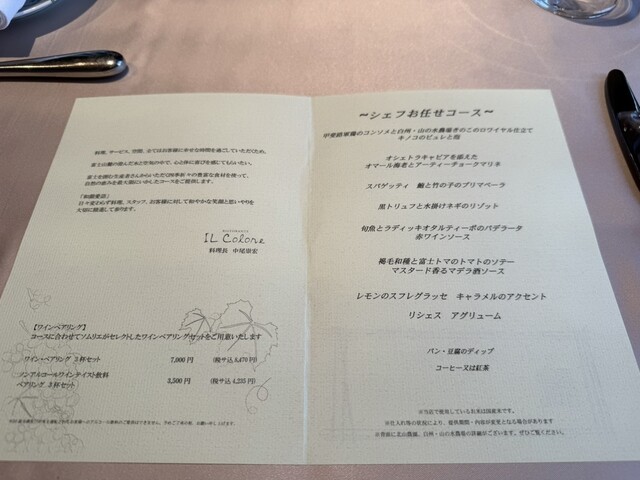 料理、サービス、空間、全てはお客様に幸せな時間を過ごしていただくため。
富士山麓の澄んだ水と空気の中で、心と体に喜びを感じてもらいたい。
富士を囲む生産者さんからいただく四季折々の豊富な食材を使って、
自然の恵みを最大限にいかしたコースをご提供します。
「和顔愛語」
日々変わらず料理、スタッフ、お客様に対して和やかな笑顔と思いやりを
大切に精進して参ります。
RISTORANTE
IL Colore
料理長 中尾崇宏
【ワインペアリング】
コースに合わせてソムリエがセレクトしたワインペアリングセットをご用意いたします
ワイン・ペアリング 3杯セット 7,000円 (税サ込 8,470円)
ノンアルコールワインテイスト飲料
ペアリング 3杯セット 3,500円 (税サ込 4,235円)
～シェフお任せコース～
甲斐路軍鶏のコンソメと白州・山の水農場きのこのロワイヤル仕立て
キノコのピュレと泡
オシェトラキャビアを添えた
オマール海老とアーティーチョークマリネ
スパゲッティ 鮑と竹の子のプリマベーラ
黒トリュフと水掛けネギのリゾット
旬魚とラディッキオタルティーボのパデラータ
赤ワインソース
褐毛和種と富士トマトのトマトのソテー
マスタード香るマデラ酒ソース
レモンのスフレグラッセ キャラメルのアクセント
リシェス アグリューム
パン・豆腐のディップ
コーヒー又は紅茶
※当店で使用しているお米は国産米です。
※仕入れ等の状況により、提供期間・内容が変更となる場合があります
※背面に北山農園、白州・山の水農場の詳細がございます。ぜひご覧ください。